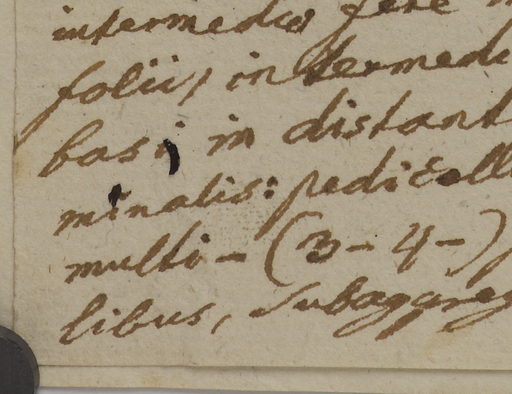 intermedio fere
foliis, in intermedi
basi, in distant
minalis: pedicelli
multi - (3 - 4 -)
libus, Subaggreg